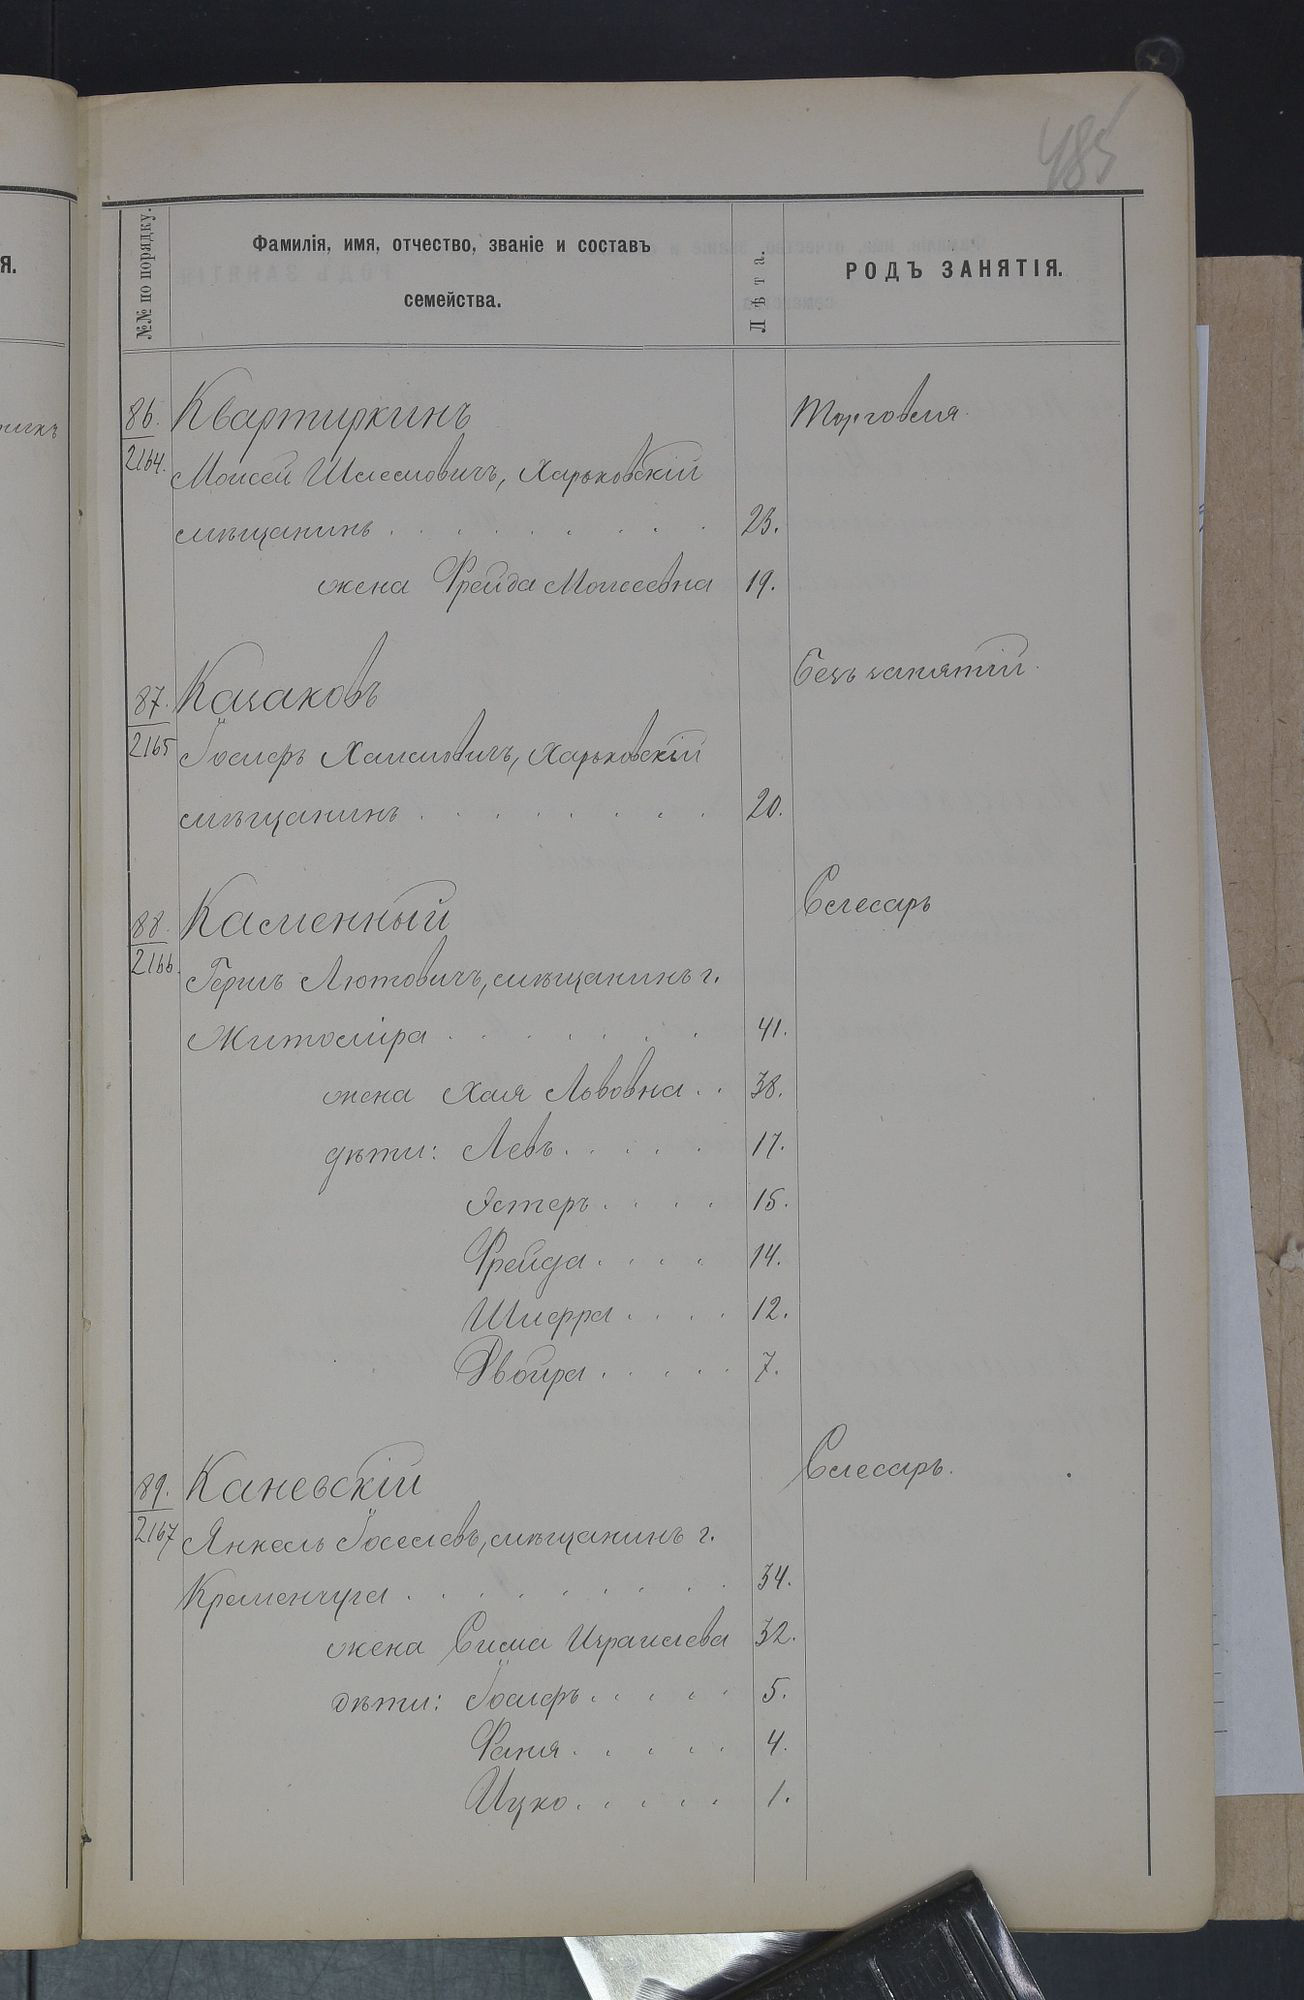 485
№№ по порядку.
Фамилія, имя, отчество, званіе и составъ
семейства.
Лѣта.
РОДЪ ЗАНЯТІЯ.
Я.
86. Квартиркинъ Торговля.
2164. Моисей Шлемовичъ, Харьковскій
мѣщанинъ . . . . . . . . 23.
жена Фрейда Моисеевна 19.
87. Казаковъ Безъ занятій.
2165 Іосифъ Хаимовичъ, Харьковскій
мѣщанинъ . . . . . . . . 20.
88. Каменный Слесарь
2166. Герцъ Лютовичъ, мѣщанинъ г.
Житоміра . . . . . . . 41.
жена Хая Львовна . . 38.
дѣти: Левъ . . . . . 17.
Эстеръ . . . . 15.
Фрейда . . . . 14.
Шифра . . . . 12.
Двойра . . . . . 7.
89. Каневскій Слесарь.
2167 Янкель Іоселевъ, мѣщанинъ г.
Кременчуга . . . . . . . . . 34.
жена Сима Израилева 32.
дѣти: Іосифъ . . . . . 5.
Фаня . . . . . 4.
Ицко . . . . . 1.